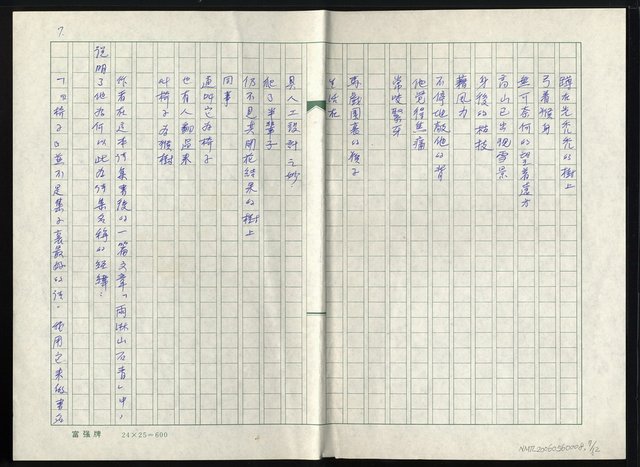 蹲在光禿禿的樹上
弓着猴身
無可奈何的望着遠方
高山已出現雪景
身後的枯枝
藉風力
不停地敲他的背
他覺得無痛
當咬緊牙
馬戲團裏的猴子
生活在
具人工設計之妙
爬了半輩子
仍不見其開花結果的樹上
同事
這叫它為椅子
也有人翻過來
叫椅子為猴樹
作者在這本詩集書後的一篇文章「兩湫山石青」中,
說明了他為何以此為詩集名稱的經緯:
「『椅子』並不是集子裏最好的詩,使用它來做書名
7.
富強牌 24×25=600
NMTL20060560008. 7/12